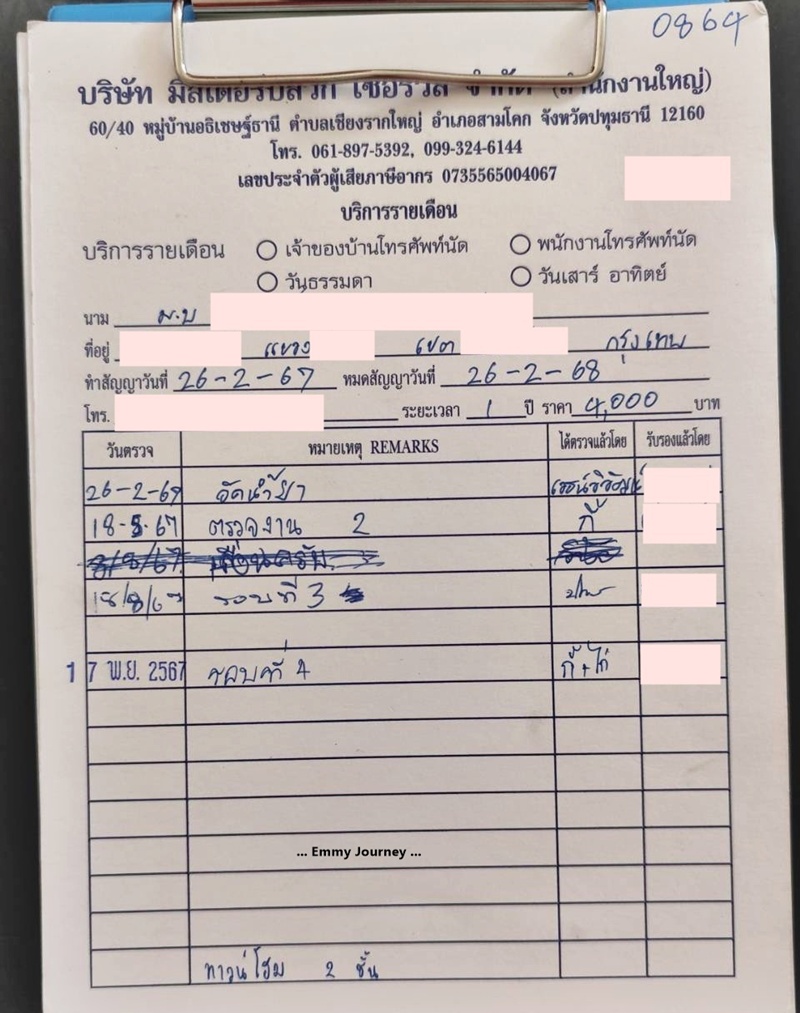 0864
บริษัท มิสเตอร์ปลวก เซอร์วิส จำกัด (สำนักงานใหญ่)
60/40 หมู่บ้านอธิเชษฐ์ธานี ตำบลเชียงรากใหญ่ อำเภอสามโคก จังหวัดปทุมธานี 12160
โทร. 061-897-5392, 099-324-6144
เลขประจำตัวผู้เสียภาษีอากร 0735565004067
บริการรายเดือน
บริการรายเดือน เจ้าของบ้านโทรศัพท์นัด พนักงานโทรศัพท์นัด
วันธรรมดา วันเสาร์ อาทิตย์
นาม ม.บ
ที่อยู่ แขวง เขต กรุงเทพ
ทำสัญญาวันที่ 26-2-67 หมดสัญญาวันที่ 26-2-68
โทร. ระยะเวลา 1 ปี ราคา 4,000 บาท
วันตรวจ หมายเหตุ REMARKS ได้ตรวจแล้วโดย รับรองแล้วโดย
26-2-67 อัดน้ำยา
18-5-67 ตรวจงาน 2 กี้
18/8/67 รอบที่ 3
17 พ.ย. 2567 รอบที่ 4 กี้+ไก่
... Emmy Journey ...
ทาวน์โฮม 2 ชั้น